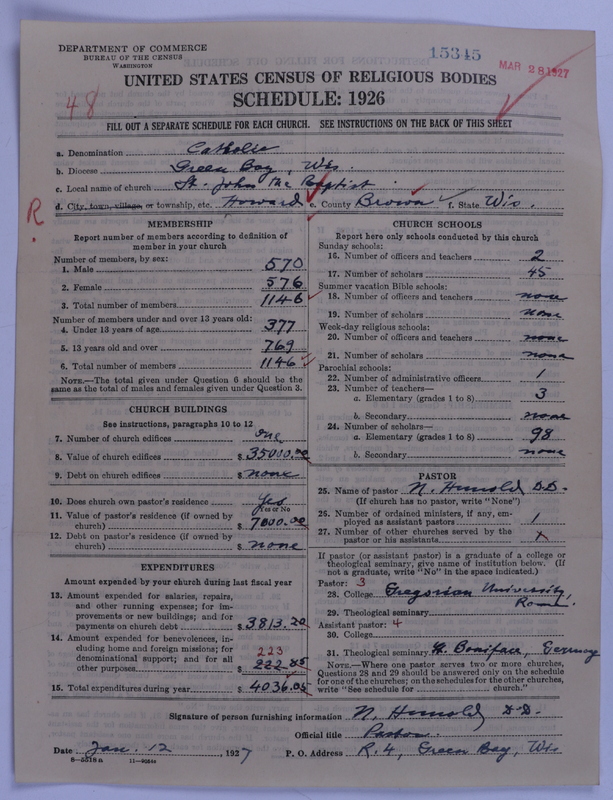 DEPARTMENT OF COMMERCE
BUREAU OF THE CENSUS
WASHINGTON
15345
MAR 28 1927
UNITED STATES CENSUS OF RELIGIOUS BODIES
SCHEDULE: 1926
48
FILL OUT A SEPARATE SCHEDULE FOR EACH CHURCH. SEE INSTRUCTIONS ON THE BACK OF THIS SHEET
a. Denomination Catholic
b. Diocese Green Bay, Wis.
c. Local name of church St. John the Baptist
d. City, town, village, or township, etc. Howard e. County Brown f. State Wis.
R.
MEMBERSHIP
Report number of members according to definition of
member in your church
Number of members, by sex:
1. Male 570
2. Female 576
3. Total number of members 1146
Number of members under and over 13 years old:
4. Under 13 years of age 377
5. 13 years old and over 769
6. Total number of members 1146
NOTE.—The total given under Question 6 should be the
same as the total of males and females given under Question 3.
CHURCH BUILDINGS
See instructions, paragraphs 10 to 12
7. Number of church edifices one
8. Value of church edifices $ 35000.00
9. Debt on church edifices $ none
10. Does church own pastor's residence Yes
(Yes or No)
11. Value of pastor's residence (if owned by
church) $ 7000.00
12. Debt on pastor's residence (if owned by
church) $ none
EXPENDITURES
Amount expended by your church during last fiscal year
13. Amount expended for salaries, repairs,
and other running expenses; for im-
provements or new buildings; and for
payments on church debt $ 3813.20
14. Amount expended for benevolences, in-
cluding home and foreign missions; for
denominational support; and for all
223
other purposes $ 222.85
15. Total expenditures during year $ 4036.05
CHURCH SCHOOLS
Report here only schools conducted by this church
Sunday schools:
16. Number of officers and teachers 2
17. Number of scholars 45
Summer vacation Bible schools:
18. Number of officers and teachers none
19. Number of scholars none
Week-day religious schools:
20. Number of officers and teachers none
21. Number of scholars none
Parochial schools:
22. Number of administrative officers 1
23. Number of teachers—
a. Elementary (grades 1 to 8) 3
b. Secondary none
24. Number of scholars—
a. Elementary (grades 1 to 8) 98
b. Secondary none
PASTOR
25. Name of pastor N. D.D.
(If church has no pastor, write "None")
26. Number of ordained ministers, if any, em-
ployed as assistant pastors 1
27. Number of other churches served by the
pastor or his assistants x
If pastor (or assistant pastor) is a graduate of a college or
theological seminary, give name of institution below. (If
not a graduate, write "No" in the space indicated.)
Pastor: 3
28. College Gregorian University,
Rome.
29. Theological seminary
Assistant pastor: 4
30. College
31. Theological seminary St. Boniface, Germany
NOTE.—Where one pastor serves two or more churches,
Questions 28 and 29 should be answered only on the schedule
for one of the churches; on the schedules for the other churches,
write "See schedule for church."
Signature of person furnishing information N. D.D.
Official title Pastor.
Date Jan. 12, 1927 P. O. Address R. 4, Green Bay, Wis
8—5318a 11—9054a